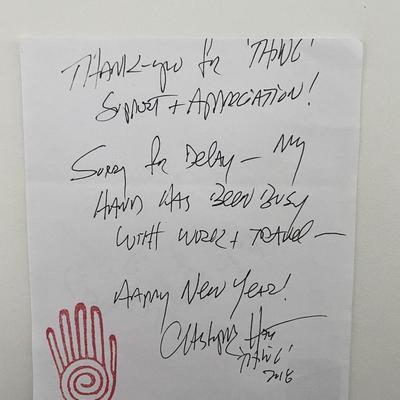 Thank-you for 'THING'
Support + Appreciation!
Sorry for Delay – My
Hand Has Been Busy
With work + Travel –
Happy New Year!
Christopher Hart
'THING'
2018